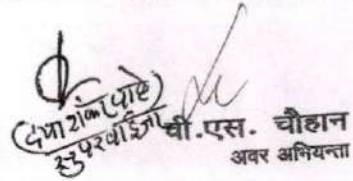 (दया शंकर पाण्डे)
सुपरवाईजर
वी.एस. चौहान
अवर अभियन्ता